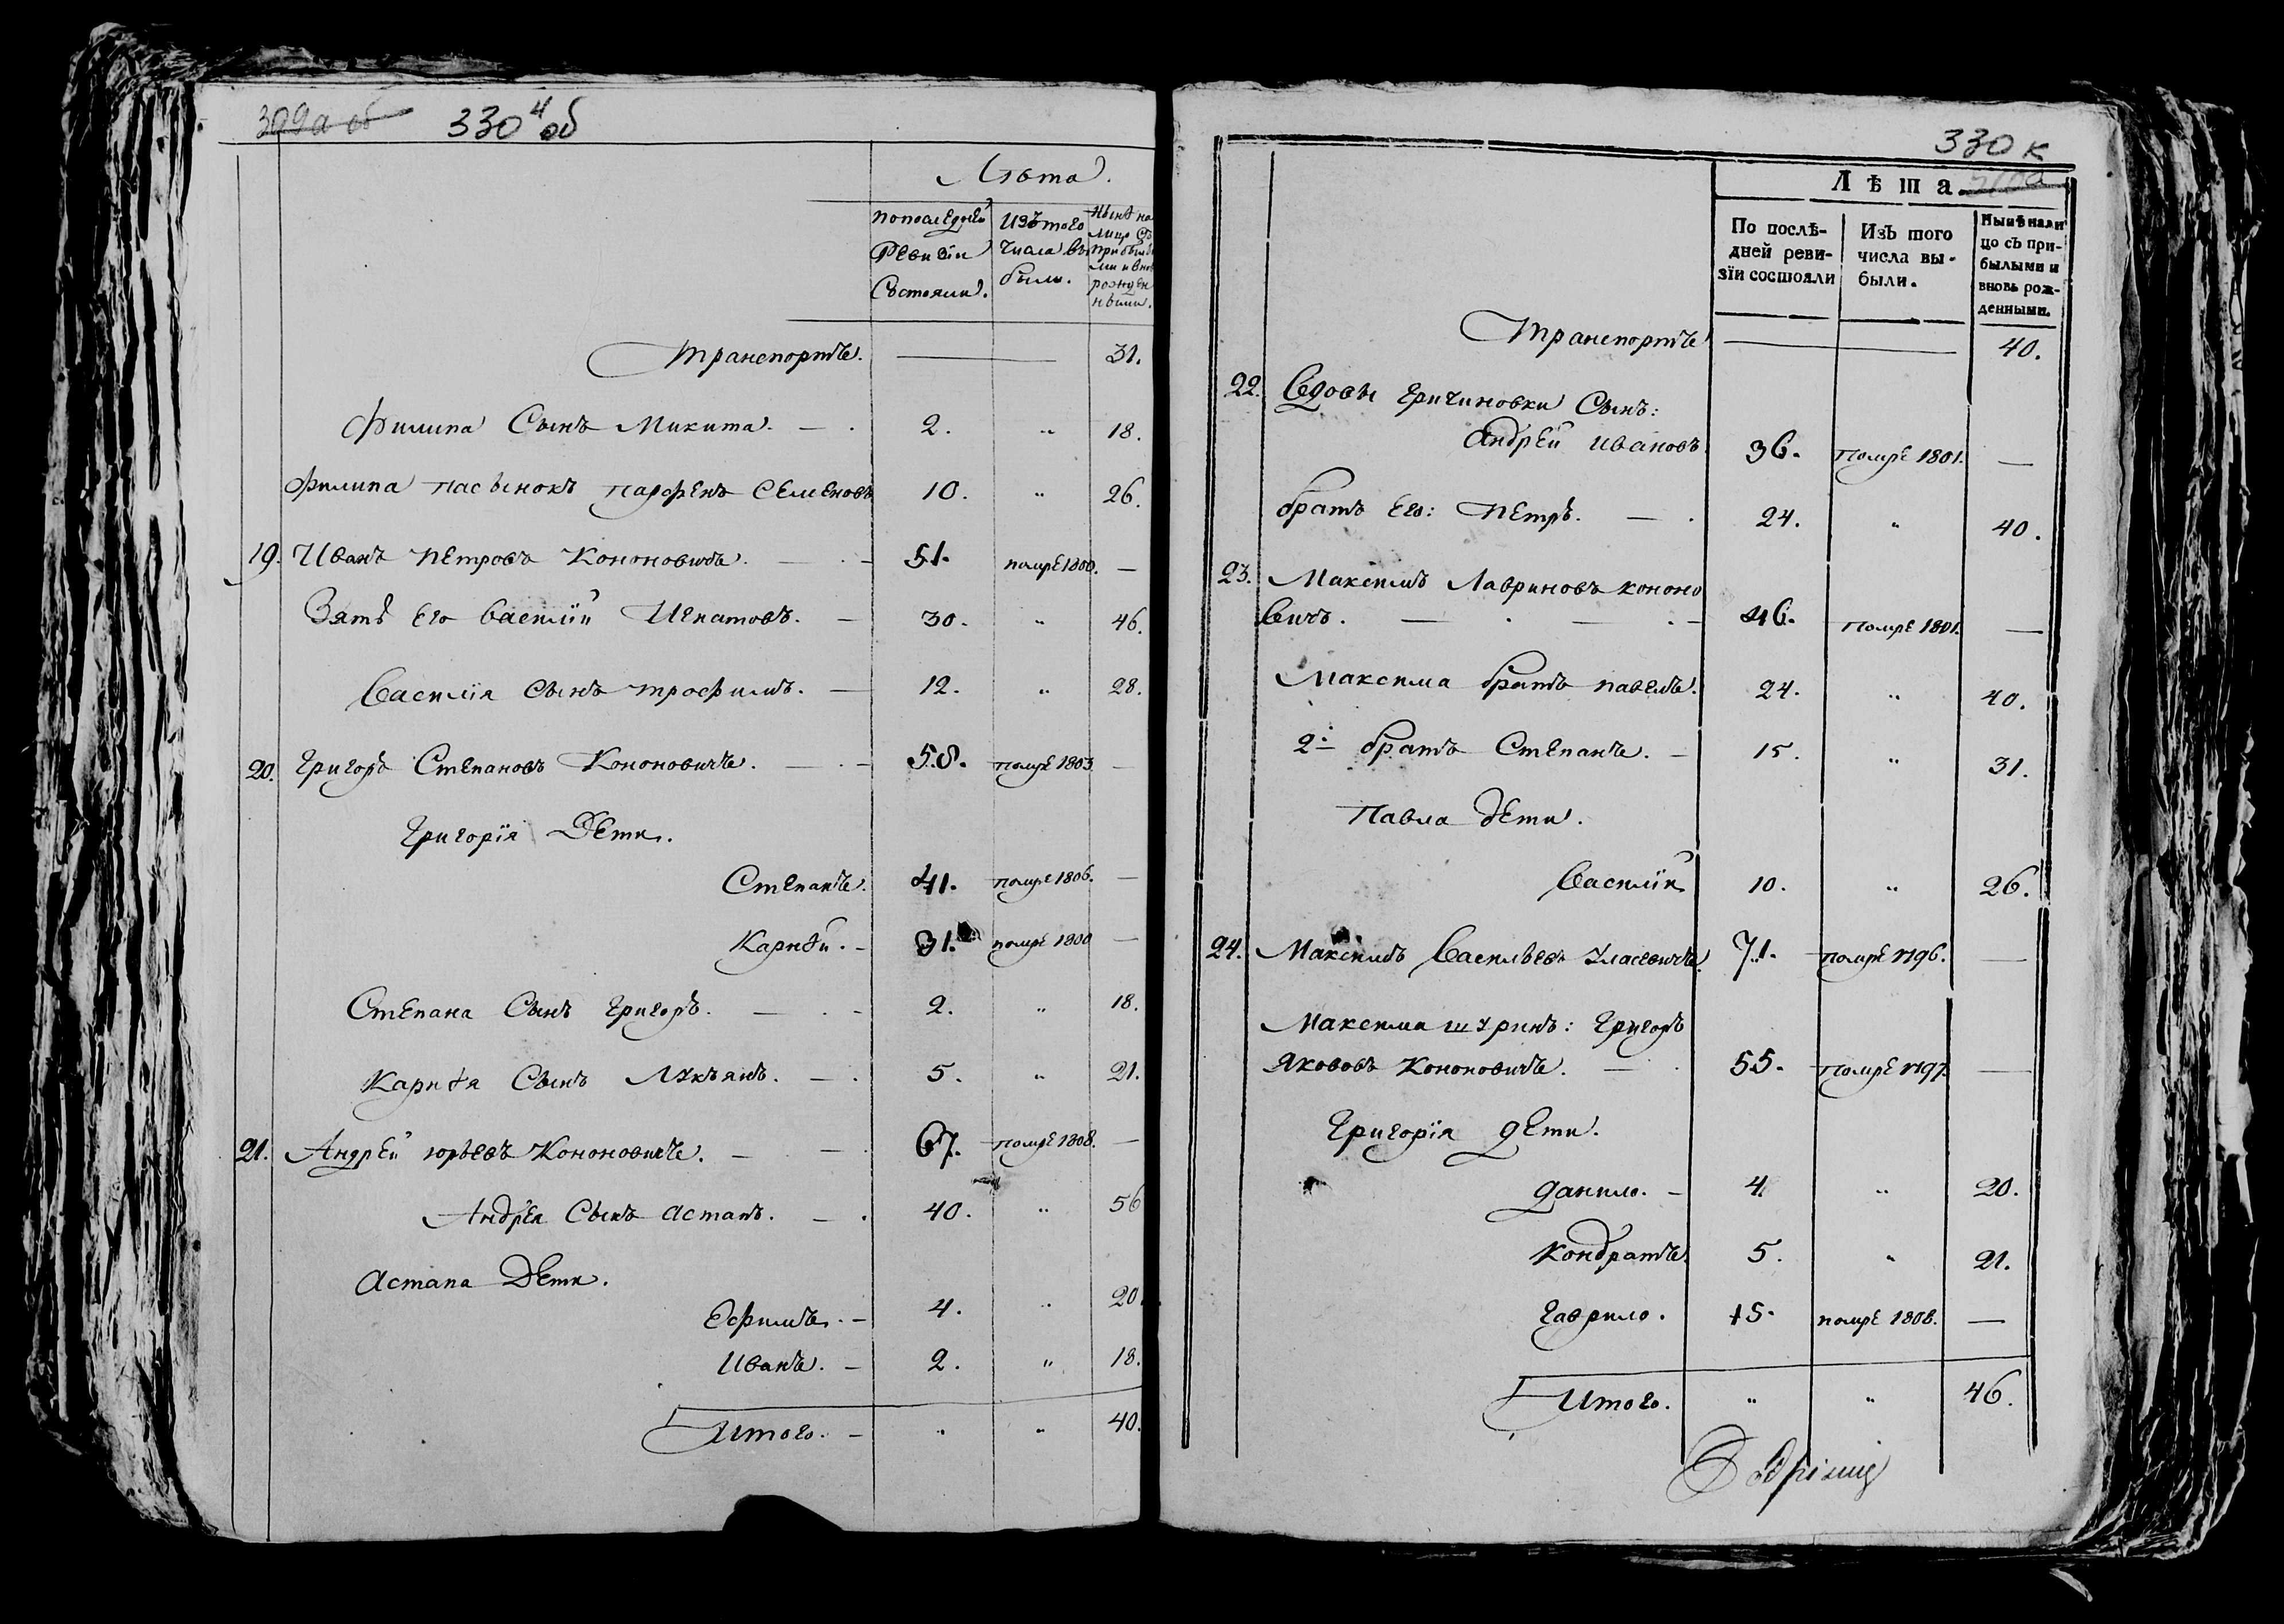 309а об 330 4 об
Лѣта.
По последней Ревизіи Состояли.
Изъ того числа выбыли.
Нынѣ на лицо съ прибылыми и вновь рожденными.
Транспортъ. — 31.
Филипа Сынъ Микита. — 2. „ 18.
Филипа пасынокъ парфенъ Семеновъ 10. „ 26.
19. Иванъ Петровъ Кононовичъ. — 51. помре 1800. —
Зять его Василій Игнатовъ. — 30. „ 46.
Василія Сынъ трофимъ. — 12. „ 28.
20. Григоръ Степановъ Кононовичъ. — 58. помре 1803. —
Григорія Дети.
Степанъ. 41. помре 1806. —
Карнѣй. — 31. помре 1800 —
Степана Сынъ Григоръ. — 2. „ 18.
Карнѣя Сынъ Лукъянъ. — 5. „ 21.
21. Андрей юрьевъ Кононовичъ. — 67. помре 1808. —
Андрея Сынъ Астапъ. — 40. „ 56
Астапа Дети.
Ефимъ. — 4. „ 20
Иванъ. — 2. „ 18.
Итого. — „ „ 40.
330 к
Лѣта
По послѣдней ревизіи состояли
Изъ того числа выбыли.
Нынѣ налицо съ прибылыми и вновь рожденными.
Транспортъ — 40.
22. Вдовы Гричиновки Сынъ:
Андрей Ивановъ 36. помре 1801. —
братъ его: Петръ. — 24. „ 40.
23. Максимъ Лавриновъ конono
вичъ. — 46. помре 1801. —
Максима братъ павелъ. 24. „ 40.
2й братъ Степанъ. — 15. „ 31.
Павла дети.
Василій 10. „ 26.
24. Максимъ Васильевъ Уласевичъ. 71. помре 1796. —
Максима шуринъ: Григоръ
Яковъ Кононовичъ. — 55. помре 1797. —
Григорія дети.
данило. — 4 „ 20.
Кондратъ. 5. „ 21.
Гаврило. 15. помре 1808. —
Итого. „ „ 46.